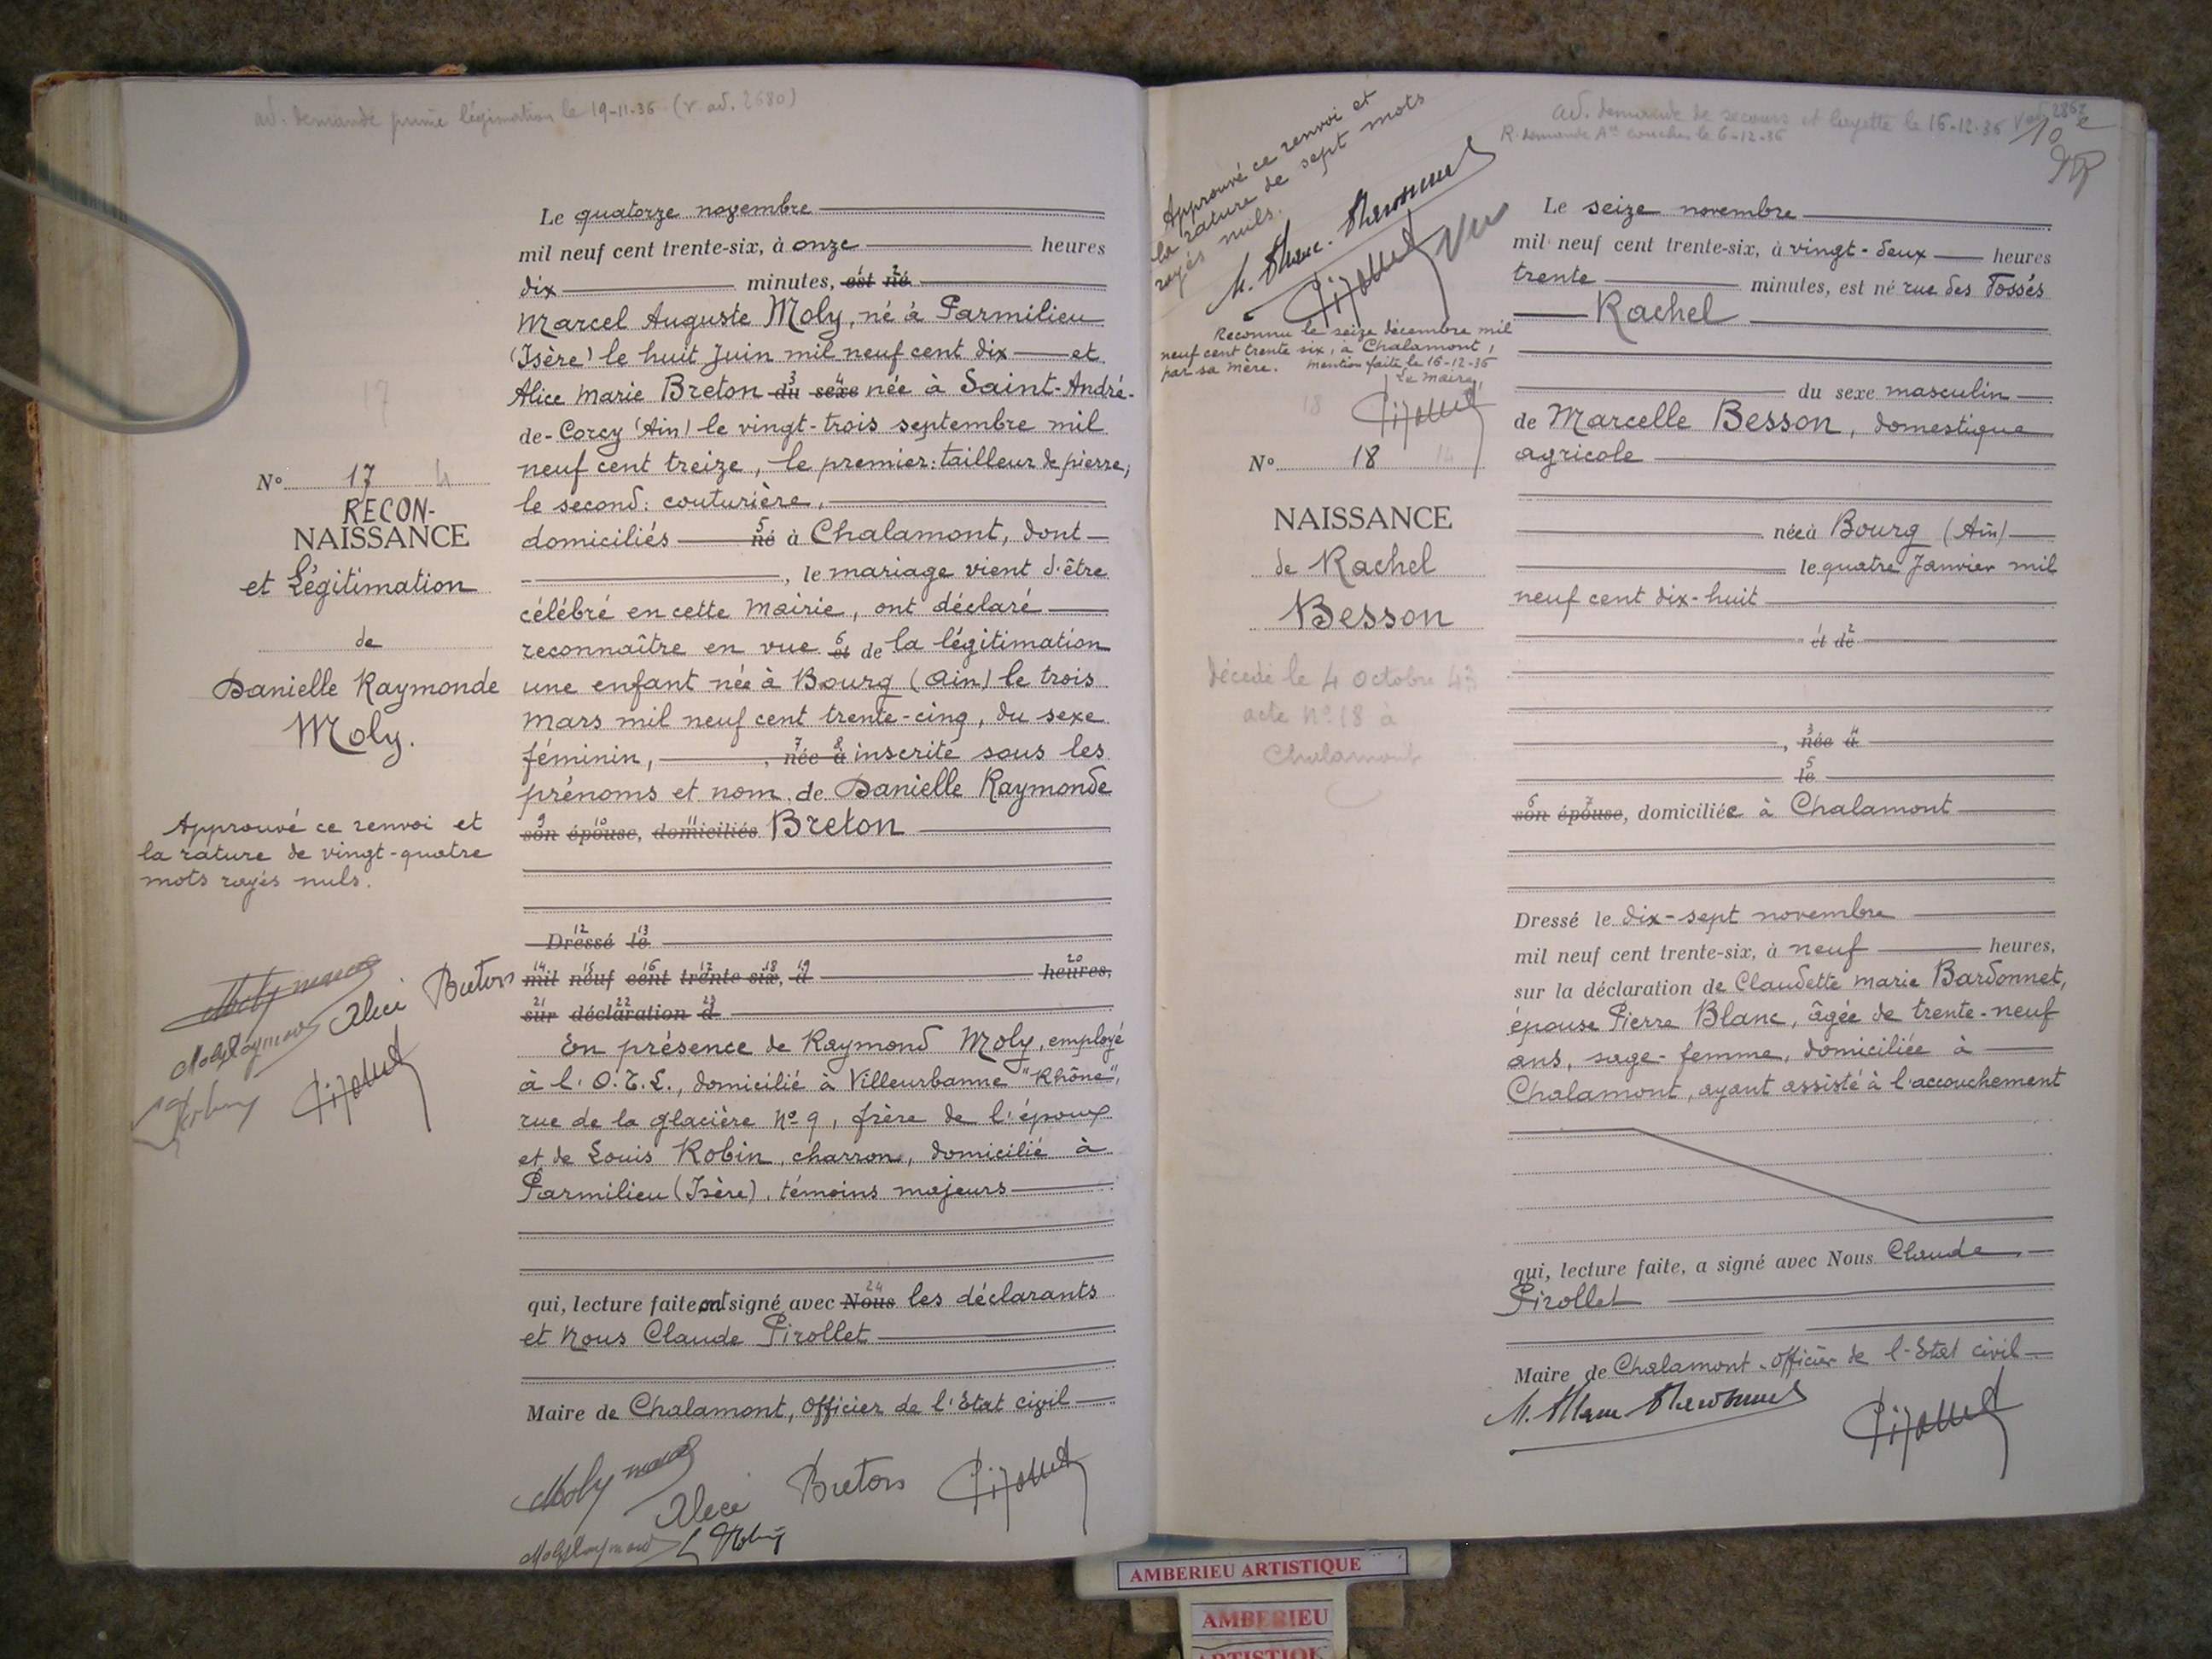 ad. demande prime légimation le 19-11-36 (v ad. 2680)
Le quatorze novembre
mil neuf cent trente-six, à onze heures
dix minutes, est né
Marcel Auguste Moly, né à Parmilieu
(Isère) le huit Juin mil neuf cent dix et
Alice Marie Breton du sexe née à Saint-André-
de-Corcy (Ain) le vingt-trois septembre mil
neuf cent treize, le premier: tailleur de pierre,
le second: couturière,
domiciliés né à Chalamont, dont
, le mariage vient d'être
célébré en cette Mairie, ont déclaré
reconnaître en vue et de la légitimation
une enfant née à Bourg (Ain) le trois
mars mil neuf cent trente-cinq, du sexe
féminin, , née à inscrite sous les
prénoms et nom de Danielle Raymonde
son épouse, domiciliés Breton
Dressé le
mil neuf cent trente-six, à heures,
sur déclaration d
En présence de Raymond Moly, employé
à l'O.T.L., domicilié à Villeurbanne "Rhône",
rue de la glacière No 9, frère de l'époux
et de Louis Robin, charron, domicilié à
Parmilieu (Isère), témoins majeurs
qui, lecture faite, ont signé avec Nous les déclarants
et Nous Claude Pirollet
Maire de Chalamont, Officier de l'Etat civil
Moly Marcel
Alice Breton Pirollet
Moly Raymond L Robin
17
No 17 4
RECON-
NAISSANCE
et Légitimation
de
Danielle Raymonde
Moly.
Approuvé ce renvoi et
la rature de vingt-quatre
mots rayés nuls.
Moly Marcel
Moly Raymond Alice Breton
Robin Pirollet
Approuvé ce renvoi et
la rature de sept mots
rayés nuls.
M. Blanc-Bardonnet
Pirollet Vu
Reconnu le seize décembre mil
neuf cent trente six, à Chalamont,
par sa mère. Mention faite le 16-12-36
Le Maire,
Pirollet
18
No 18 14
NAISSANCE
de Rachel
Besson
décédé le 4 Octobre
acte No 18 à
Chalamont
ad. demande de secours et layette le 16-12-36 V ad 2862
R. demande Ace couches le 6-12-36
10e
Le seize novembre
mil neuf cent trente-six, à vingt-deux heures
trente minutes, est né rue des Fossés
Rachel
du sexe masculin
de Marcelle Besson, domestique
agricole
née à Bourg (Ain)
le quatre Janvier mil
neuf cent dix-huit
et de
, née à
le
son épouse, domiciliée à Chalamont
Dressé le dix-sept novembre
mil neuf cent trente-six, à neuf heures,
sur la déclaration de Claudette Marie Bardonnet,
épouse Pierre Blanc, âgée de trente-neuf
ans, sage-femme, domiciliée à
Chalamont, ayant assisté à l'accouchement
qui, lecture faite, a signé avec Nous Claude
Pirollet
Maire de Chalamont. Officier de l'Etat civil
M. Blanc-Bardonnet Pirollet
AMBERIEU ARTISTIQUE
AMBERIEU